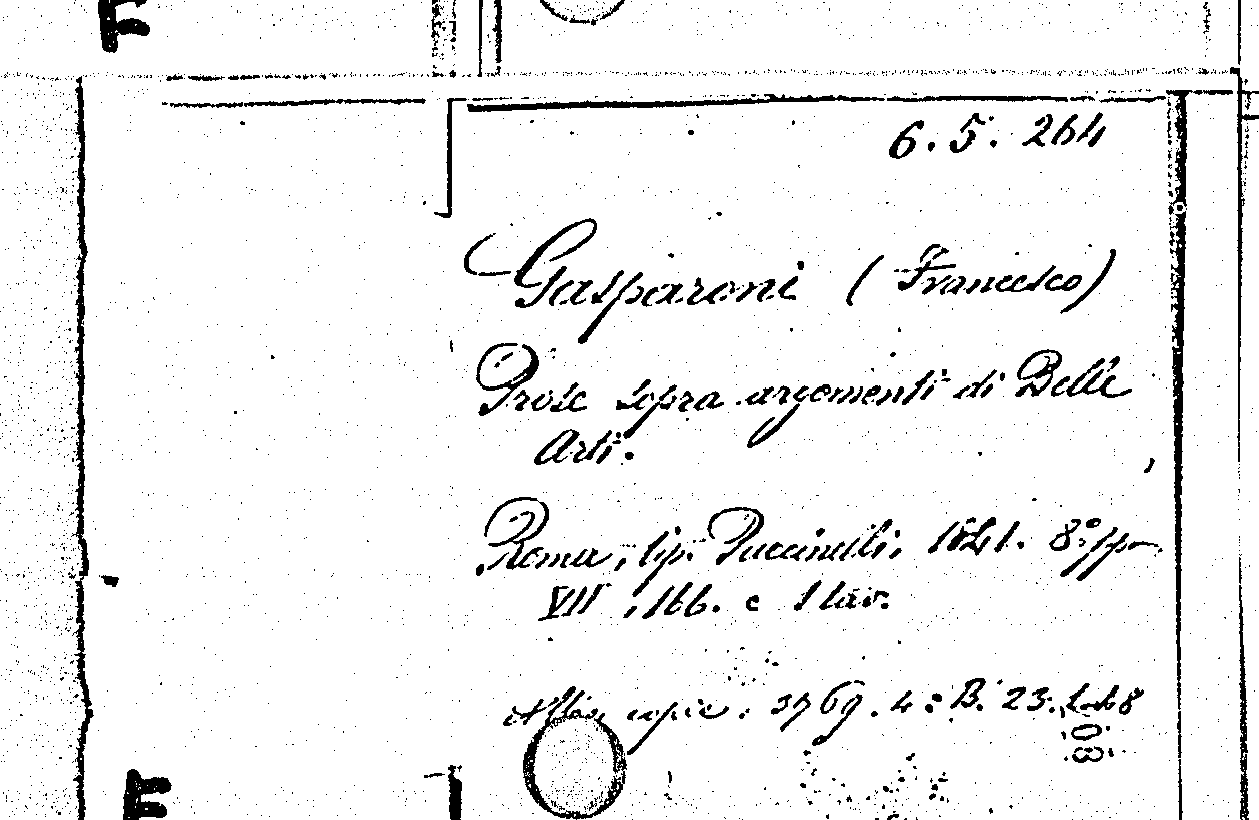 6.5.264
Gasparoni (Francesco)
Prose sopra argomenti di Belle
Arti.
Roma, tip. Puccinelli, 1841. 8.º pp.
VII, 166. e 1 tav.
Altra copia: 3769.4: B. 23.